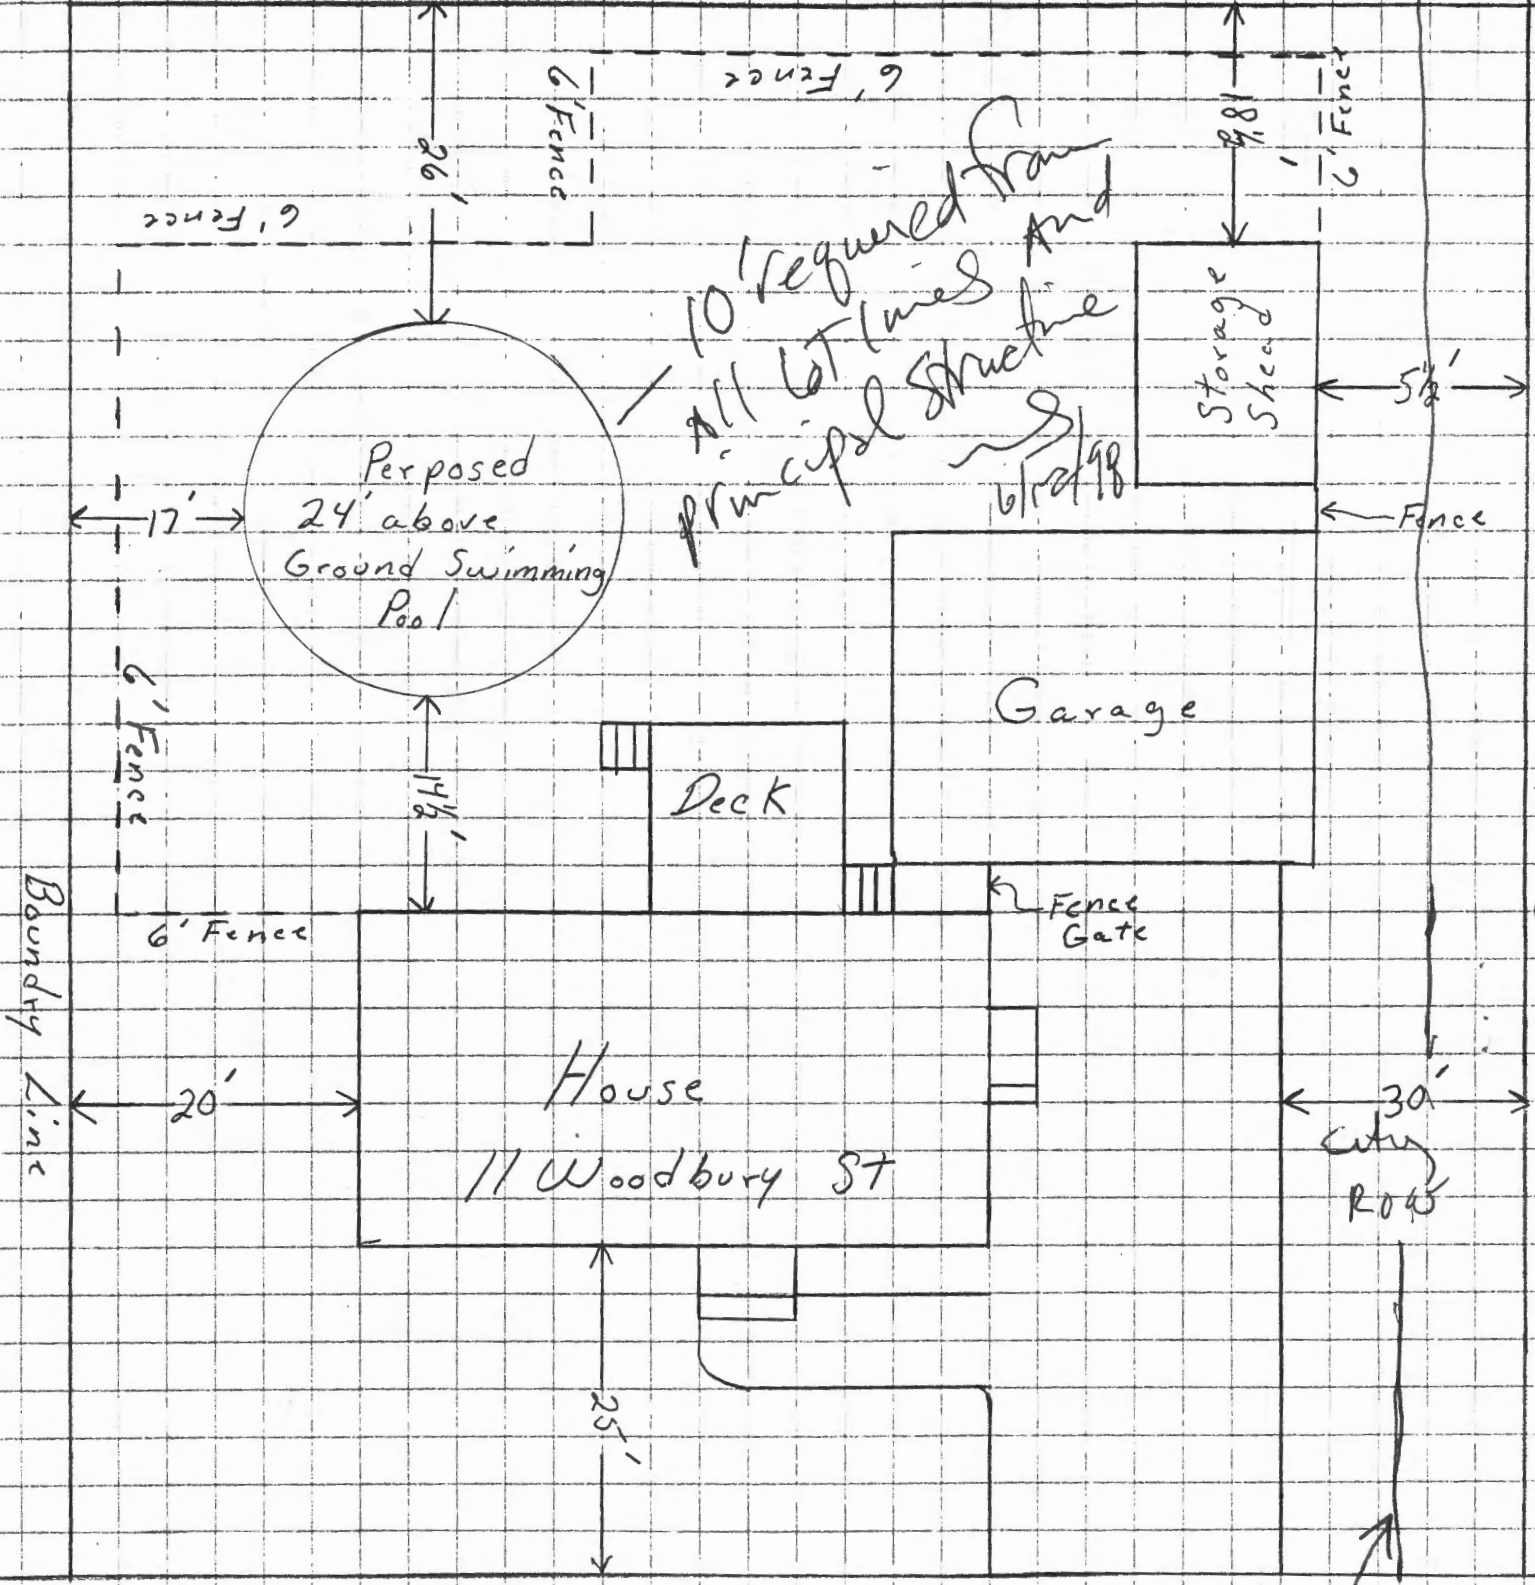 6' Fence
6' Fence
6' Fence
26'
18½'
6' Fence
10' required from
All Lot lines And
principal Structure
6/12/98
Storage
Shead
5½'
Fence
Perposed
24' above
Ground Swimming
Pool
17'
6' Fence
14½'
Deck
Garage
Fence
Gate
6' Fence
Boundry Line
20'
House
11 Woodbury St
30'
City
ROW
25'